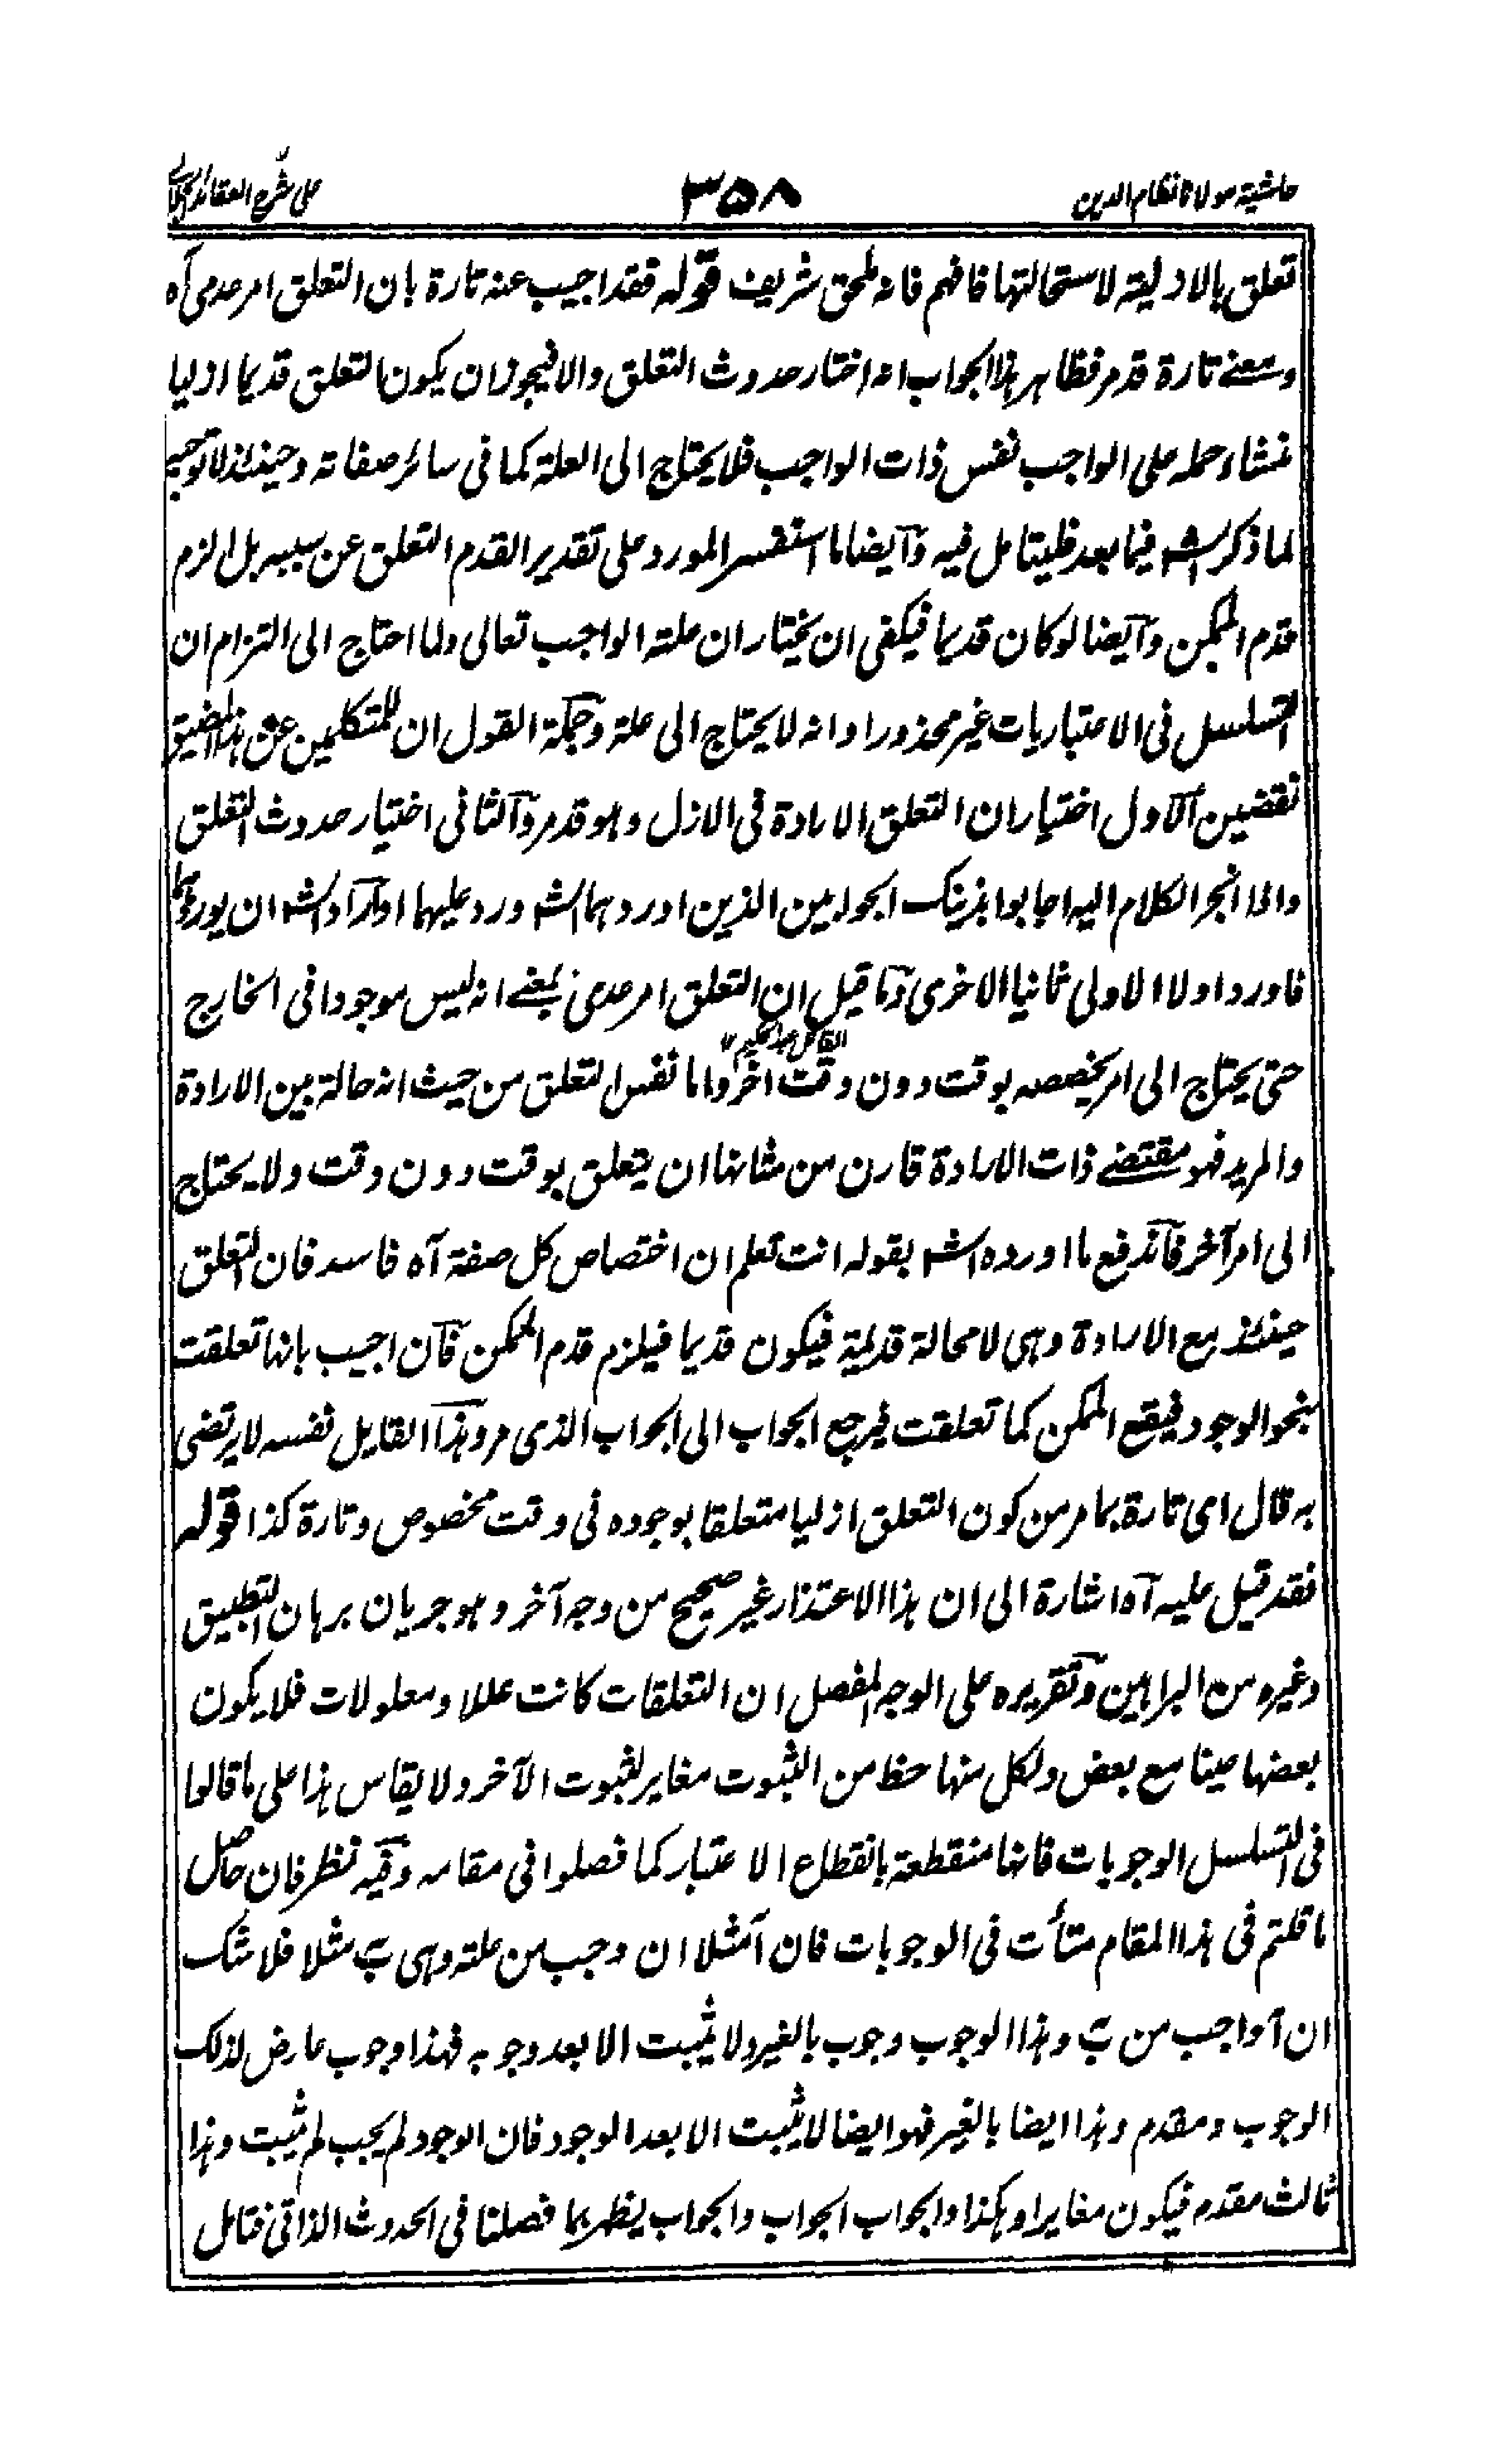 حاشية مولانا نظام الدين
٣٥٨
على شرح العقائد الجلالي
تعلق بالاولية لاستحالتها فافهم فانه لحق شريف قوله فقد اجيب عنه تارة بان التعلق امر عدمي آه
ومعنى تارة قد مر فظاهر هذا الجواب انه اختار حدوث التعلق والا فيجوز ان يكون التعلق قديما ازليا
منشاء حمله على الواجب نفس ذات الواجب فلا يحتاج الى العلة كما فى سائر صفاته وحينئذ لا توجيه
لما ذكر الشه فيما بعد فليتامل فيه وآيضا ما استفسر المورد على تقدير القدم التعلق عن سببه بل الزم
قدم الممكن وآيضا لو كان قديما فيكفى ان يختار ان علته الواجب تعالى ولما احتاج الى التزام ان
التسلسل فى الاعتباريات غير محذور او انه لا يحتاج الى علة وجملة القول ان للمتكلمين عن هذا المضيق
نقضين الآول اختيار ان التعلق الارادة فى الازل وهو قد مر والثانى اختيار حدوث التعلق
والما انجر الكلام اليه اجابوا بذينك الجوابين الذين اوردهما الشه ورد عليهما اوآراد الشه ان يورد
فاورد اولا الاولى ثانيا الاخرى وما قيل ان التعلق امر عدمي بمعنى انه ليس موجودا فى الخارج
القائل عبد الحكيم ١٢
حتى يحتاج الى امر يخصصه بوقت دون وقت آخر واما نفس التعلق من حيث انه حالة بين الارادة
والمريد فهو مقتضى ذات الارادة فارن من شانها ان يتعلق بوقت دون وقت ولا يحتاج
الى امر آخر فآندفع ما اورده الشه بقوله انت تعلم ان اختصاص كل صفة آه فاسد فان التعلق
حينئذ مع الارادة وهى لا محالة قديمة فيكون قديما فيلزم قدم الممكن فان اجيب بانها تعلقت
بنحو الوجود فيقع الممكن كما تعلقت فيرجع الجواب الى الجواب الذى مر وهذا القايل نفسه لا يرتضى
به قال اى تارة بما مر من كون التعلق ازليا متعلقا بوجوده فى وقت مخصوص وتارة كذا قوله
فقد قيل عليه آه اشارة الى ان هذا الاعتذار غير صحيح من وجه آخر وهو جريان برهان التطبيق
وغيره من البراهين وتقريره على الوجه المفصل ان التعلقات كانت عللا ومعلولات فلا يكون
بعضها عينا مع بعض ولكل منها حظ من الثبوت مغاير لثبوت الآخر ولا يقاس هذا على ما قالوا
فى التسلسل الوجوبات فانها منقطعة بانقطاع الاعتبار كما فصلوا فى مقامه وفيه نظر فان حاصل
ما قلتم فى هذا المقام متأت فى الوجوبات فان آ مثلا ان وجب من علته وهى ب مثلا فلا شك
ان آ واجب من ب وهذا الوجوب وجوب بالغير ولا يثبت الا بعد وجوبه فهذا وجوب عارض لذلك
الوجوب ومقدم وهذا ايضا بالغير فهو ايضا لا يثبت الا بعد الوجود فان الوجود لم يجب لم يثبت وهذا
ثالث مقدم فيكون مغايرا وهكذا والجواب الجواب والجواب يظهر بما فصلنا فى الحدوث الذاتى فتامل